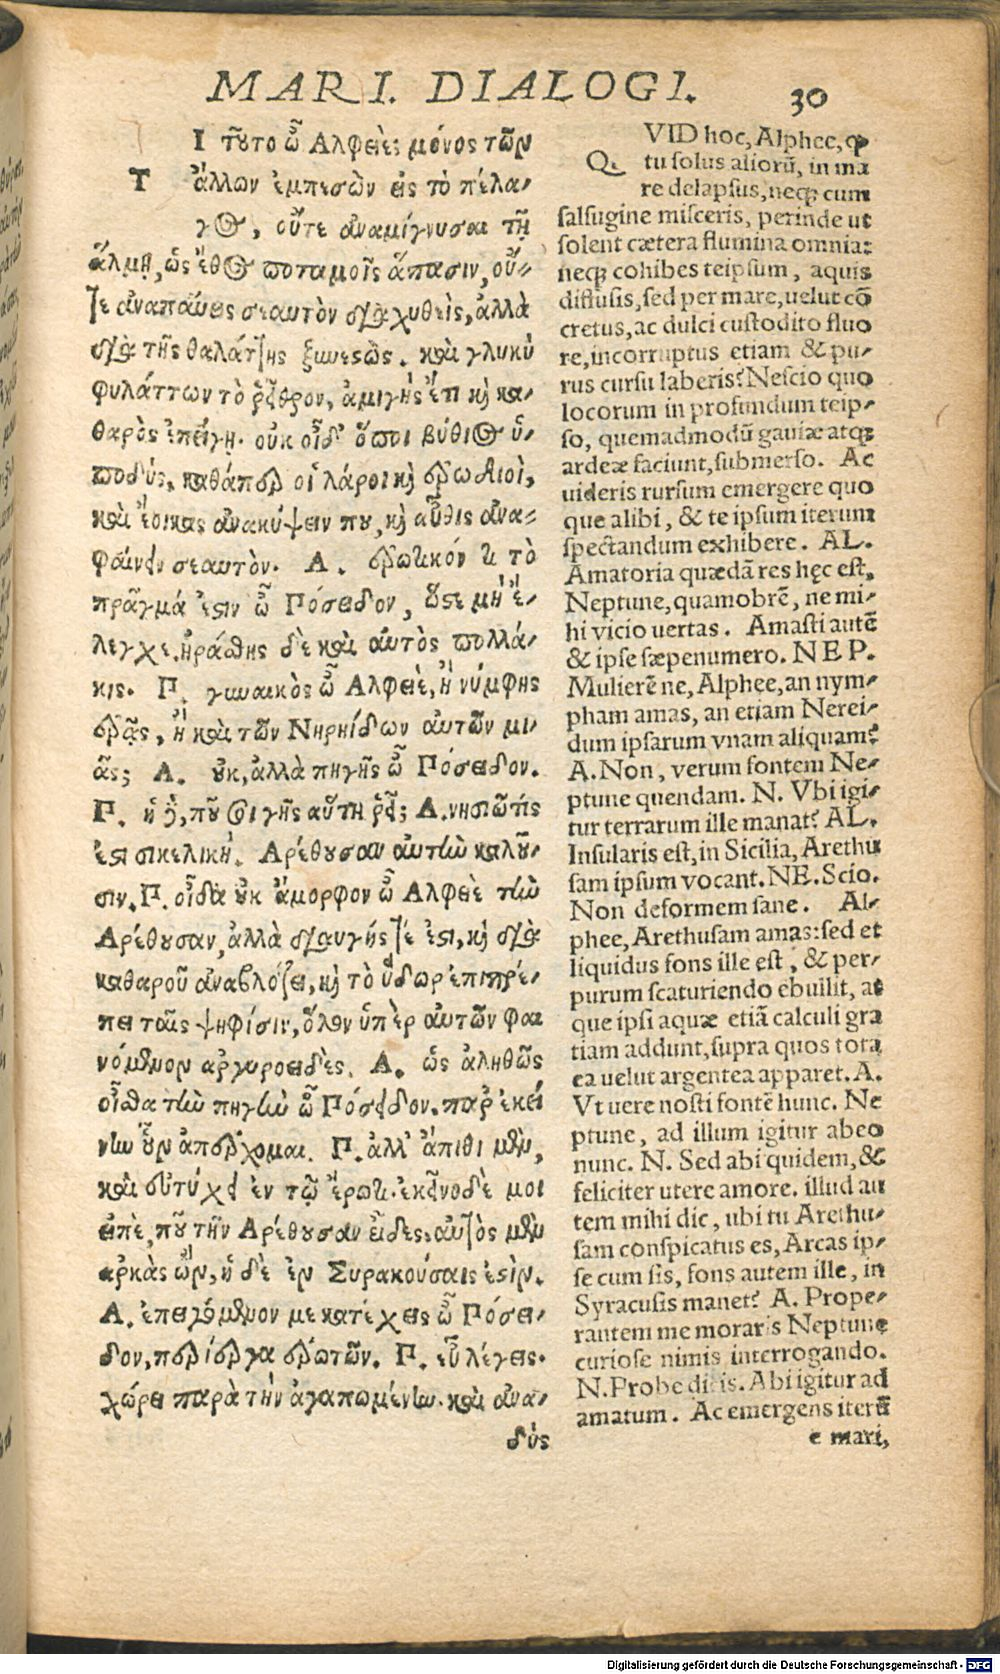 MARI. DIALOGI. 30
Ι τοῦτο ὦ Αλφειέ; μόνος τῶν
Τ ἄλλων ἐμπεσὼν εἰς τὸ πέλα-
γος, οὔτε ἀναμίγνυσαι τῇ
ἅλμῃ, ὡς ἔθος ποταμοῖς ἅπασιν, οὔ-
τε ἀναπαύεις σεαυτὸν διαχυθεὶς, ἀλλὰ
διὰ τῆς θαλάττης ξυνεστὼς, καὶ γλυκὺ
φυλάττων τὸ ῥεῖθρον, ἀμιγὴς ἔτι καὶ κα-
θαρὸς ἐπείγῃ. οὐκ οἶδ' ὅποι βύθιος ὑ-
ποδὺς, καθάπερ οἱ λάροι καὶ ἐρωδιοὶ,
καὶ ἔοικας ἀνακύψειν που, καὶ αὖθις ἀνα-
φαίνειν σεαυτὸν. Α. ἐρωτικόν τι τὸ
πρᾶγμά ἐστιν ὦ Πόσειδον, ὥστε μὴ ἔ-
λεγχε. ἠράσθης δὲ καὶ αὐτὸς πολλά-
κις. Π. γυναικὸς ὦ Αλφειὲ, ἢ νύμφης
ἐρᾷς, ἢ καὶ τῶν Νηρηίδων αὐτῶν μι-
ᾶς; Α. οὐκ, ἀλλὰ πηγῆς ὦ Πόσειδον.
Π. ἡ δὲ, ποῦ σοι γῆς αὕτη ῥεῖ; Α. νησιῶτίς
ἐστι σικελική. Αρέθουσαν αὐτὴν καλοῦ-
σιν. Π. οἶδα οὐκ ἄμορφον ὦ Αλφειὲ τὴν
Αρέθουσαν, ἀλλὰ διαυγής τέ ἐστι, καὶ διὰ
καθαροῦ ἀναβλύζει, καὶ τὸ ὕδωρ ἐπιπρέ-
πει ταῖς ψηφίσιν, ὅλον ὑπὲρ αὐτῶν φαι
νόμενον ἀργυροειδὲς. Α. ὡς ἀληθῶς
οἶσθα τὴν πηγὴν ὦ Πόσειδον. παρ' ἐκεί
νην οὖν ἀπέρχομαι. Π. ἀλλ' ἄπιθι μὲν,
καὶ εὐτύχει ἐν τῷ ἔρωτι. ἐκεῖνο δὲ μοι
εἰπὲ, ποῦ τὴν Αρέθουσαν εἶδες. αὐτὸς μὲν
ἀρκὰς ὢν, ἡ δὲ ἐν Συρακούσαις ἐστὶν.
Α. ἐπειγόμενον με κατέχεις ὦ Πόσει-
δον, περίεργα ἐρωτῶν. Π. εὖ λέγεις.
χώρει παρὰ τὴν ἀγαπωμένην. καὶ ἀνα-
δὺς
VID hoc, Alphee, qꝫ
Q. tu solus aliorũ, in ma
re delapsus, neqꝫ cum
salsugine misceris, perinde ut
solent cætera flumina omnia:
neqꝫ cohibes teipsum, aquis
diffusis, sed per mare, uelut cõ
cretus, ac dulci custodito fluo
re, incorruptus etiam & pu-
rus cursu laberis? Nescio quo
locorum in profundum teip-
so, quemadmodũ gauiæ atqꝫ
ardeæ faciunt, submerso. Ac
uideris rursum emergere quo
que alibi, & te ipsum iterum
spectandum exhibere. AL.
Amatoria quædã res hęc est,
Neptune, quamobrẽ, ne mi-
hi vicio uertas. Amasti autẽ
& ipse sæpenumero. NEP.
Mulierẽ ne, Alphee, an nym-
pham amas, an etiam Nerei-
dum ipsarum vnam aliquam?
A. Non, verum fontem Ne-
ptune quendam. N. Vbi igi-
tur terrarum ille manat? AL.
Insularis est, in Sicilia, Arethu
sam ipsum vocant. NE. Scio.
Non deformem sane. Al-
phee, Arethusam amas: sed et
liquidus fons ille est, & per-
purum scaturiendo ebullit, at
que ipsi aquæ etiã calculi gra
tiam addunt, supra quos tota
ea uelut argentea apparet. A.
Vt uere nosti fontẽ hunc. Ne
ptune, ad illum igitur abeo
nunc. N. Sed abi quidem, &
feliciter utere amore. illud au
tem mihi dic, ubi tu Arethu-
sam conspicatus es, Arcas ip-
se cum sis, fons autem ille, in
Syracusis manet? A. Prope-
rantem me moraris Neptune
curiose nimis interrogando.
N. Probe dicis. Abi igitur ad
amatum. Ac emergens iterũ
e mari,
Digitalisierung gefördert durch die Deutsche Forschungsgemeinschaft - DFG